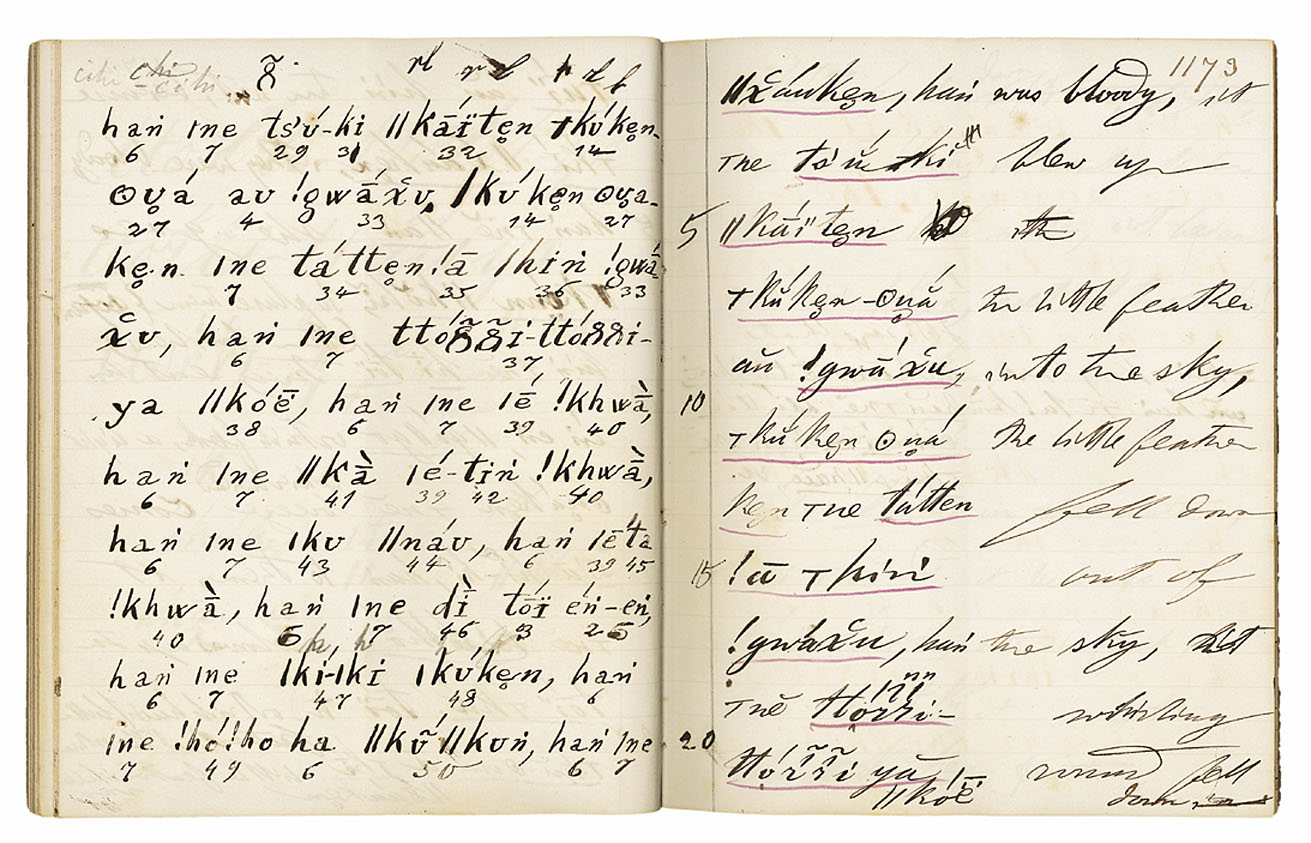 chi chi chi.
haṅ ıne tsʼú-ki ǁkáïten̥ ϯkúken̥-
6 7 29 31 32 14
ʘu̥á au !gwā́x̌u, ǀkúken̥ ʘu̥a-
27 4 33 14 27
ken̥ ıne táttten̥ !ā ǀhiṅ !gwā́
7 34 35 36 33
x̌u, haṅ ıne
6 7 37
ya ǁkóë̄, haṅ ıne ıḗ !khwā̀,
38 6 7 39 40
haṅ ıne ǁkā̀ ıé-tiṅ !khwā̀,
6 7 41 39 42 40
haṅ ıne ıku ǁnáu, haṅ ıē ta
6 7 43 44 6 39 45
!khwā̀, haṅ ıne dı̀ tóï éṅ-eṅ,
40 6 7 46 3 26
haṅ ıne ǀki-ǀki ǀkúken̥, haṅ
6 7 47 48 6
ıne !hó!ho ha ǁkṹǁkuṅ, haṅ ıne
7 49 6 50 6 7
1173
ǁx̌áuken̥, haṅ was bloody,
ıne blew up
5 ǁkáïten̥
ϯkúken̥-ʘu̥á the little feather
au !gwā́x̌u, into the sky,
10
ϯkúken̥ ʘu̥á the little feather
ken̥ ıne tátten fell down
15 !ā ϯhiṅ out of
!gwáx̌u, haṅ the sky,
ıne whirling
20 round fell
ǁkóë̄ down